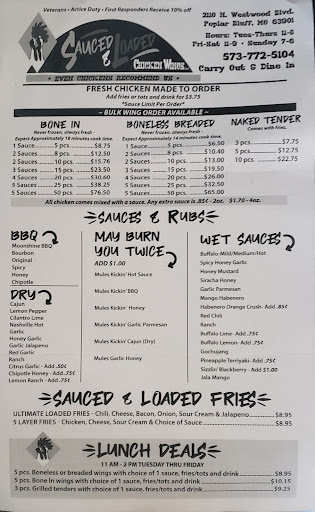 Veterans - Active Duty - First Responders Receive 10% off
2110 N. Westwood Blvd.
Poplar Bluff, MO 63901
Hours: Tues-Thurs 11-8
Fri-Sat 11-9 - Sunday 7-6
573-772-5104
Carry Out & Dine In
SAUCED & LOADED
CHICKEN WINGS
• EVEN CHICKENS RECOMMEND US •
FRESH CHICKEN MADE TO ORDER
Add fries or tots and drink for $3.75
*Sauce Limit Per Order*
~ BULK WING ORDER AVAILABLE ~
BONE IN
Never frozen, always fresh -
Expect Approximately 18 minutes cook time.
1 Sauce 5 pc. $8.75
2 Sauces 8 pc. $12.50
2 Sauces 10 pc. $15.76
3 Sauces 15 pc. $23.50
4 Sauces 20 pc. $30.60
5 Sauces 25 pc. $38.25
5 Sauces 50 pc. $76.50
BONELESS BREADED
Never frozen, always fresh -
Expect Approximately 14 minutes cook time.
1 Sauce 5 pc. $6.50
2 Sauces 8 pc. $10.40
2 Sauces 10 pc. $13.00
3 Sauces 15 pc. $19.50
4 Sauces 20 pc. $26.00
5 Sauces 25 pc. $32.50
5 Sauces 50 pc. $65.00
NAKED TENDER
Comes with fries.
3 pc. $7.75
5 pc. $12.75
10 pc. $22.75
All chicken comes mixed with a sauce. Any extra sauce is .85¢ - 2oz. $1.70 - 4oz.
SAUCES & RUBS
BBQ
Moonshine BBQ
Bourbon
Original
Spicy
Honey
Chipotle
DRY
Cajun
Lemon Pepper
Cilantro Lime
Nashville Hot
Garlic
Honey Garlic
Garlic Jalapeno
Red Garlic
Ranch
Citrus Garlic - Add .50¢
Chipotle Honey - Add .75¢
Lemon Ranch - Add .75¢
MAY BURN
YOU TWICE
ADD $1.00
Mules Kickin' Hot Sauce
Mules Kickin' BBQ
Mules Kickin' Honey
Mules Kickin' Garlic Parmesan
Mules Kickin' Cajun (Dry)
Mules Garlic Honey
WET SAUCES
Buffalo Mild/Medium/Hot
Spicy Honey Garlic
Honey Mustard
Siracha Honey
Garlic Parmesan
Mango Habenero
Habenero Orange Crush- Add .85¢
Red Chili
Ranch
Buffalo Lime- Add .75¢
Buffalo Lemon- Add .75¢
Gochujang
Pineapple Terriyaki- Add .75¢
Sizzlin' Blackberry - Add $1.00
Jala Mango
SAUCED & LOADED FRIES
ULTIMATE LOADED FRIES - Chili, Cheese, Bacon, Onion, Sour Cream & Jalapeno $8.95
5 LAYER FRIES - Chicken, Cheese, Sour Cream & Choice of Sauce $8.95
LUNCH DEALS
11 AM - 2 PM TUESDAY THRU FRIDAY
5 pcs. Boneless or breaded wings with choice of 1 sauce, fries/tots and drink $8.95
5 pcs. Bone In wings with choice of 1 sauce, fries/tots and drink $10.15
3 pcs. Grilled tenders with choice of 1 sauce, fries/tots and drink $9.25